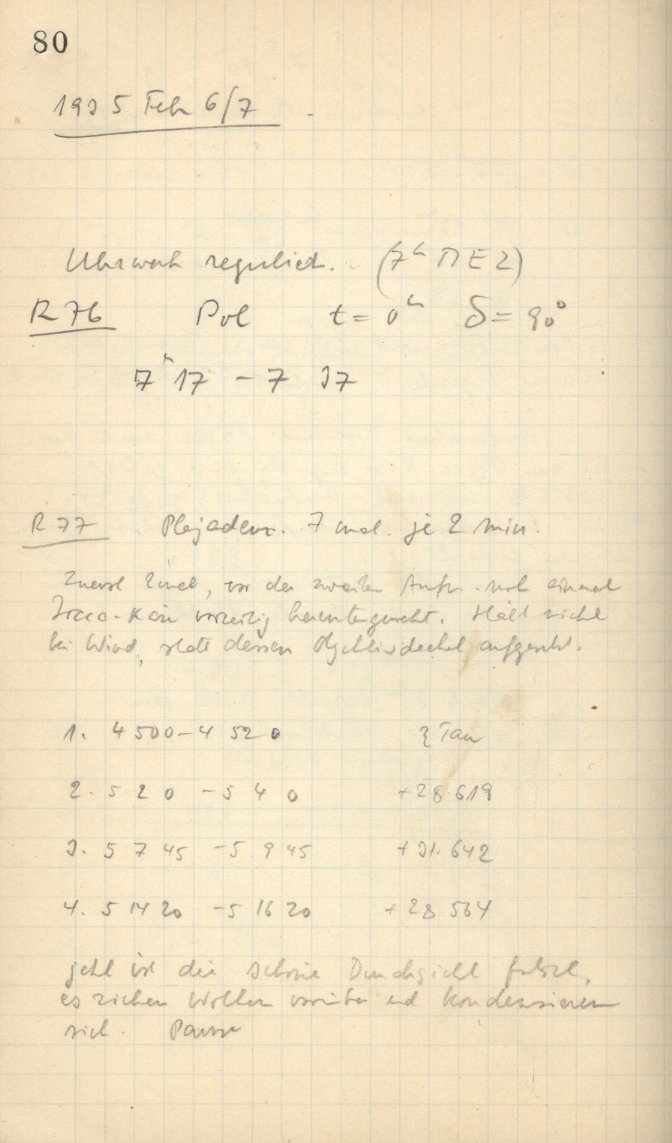 80
1935 Febr 6/7
Uhrwerk reguliert. (7h MEZ)
R 76 Pol t = 0h δ = 90°
7h 17 - 7 37
R 77 Plejaden. 7 mal je 2 min.
Zuerst 2mal, vor der zweiten Aufn. noch einmal
vorzeitig heruntergeweht. Hält nicht
bei Wind, statt dessen Objektivdeckel aufgesetzt.
1. 4 50 0 - 4 52 0 Tau
2. 5 2 0 - 5 4 0 +28.619
3. 5 7 45 - 5 9 45 +31.642
4. 5 14 20 - 5 16 20 +28.564
jetzt ist die schöne Durchsicht futsch,
es ziehen Wolken vorüber und kondensieren
sich. Pause